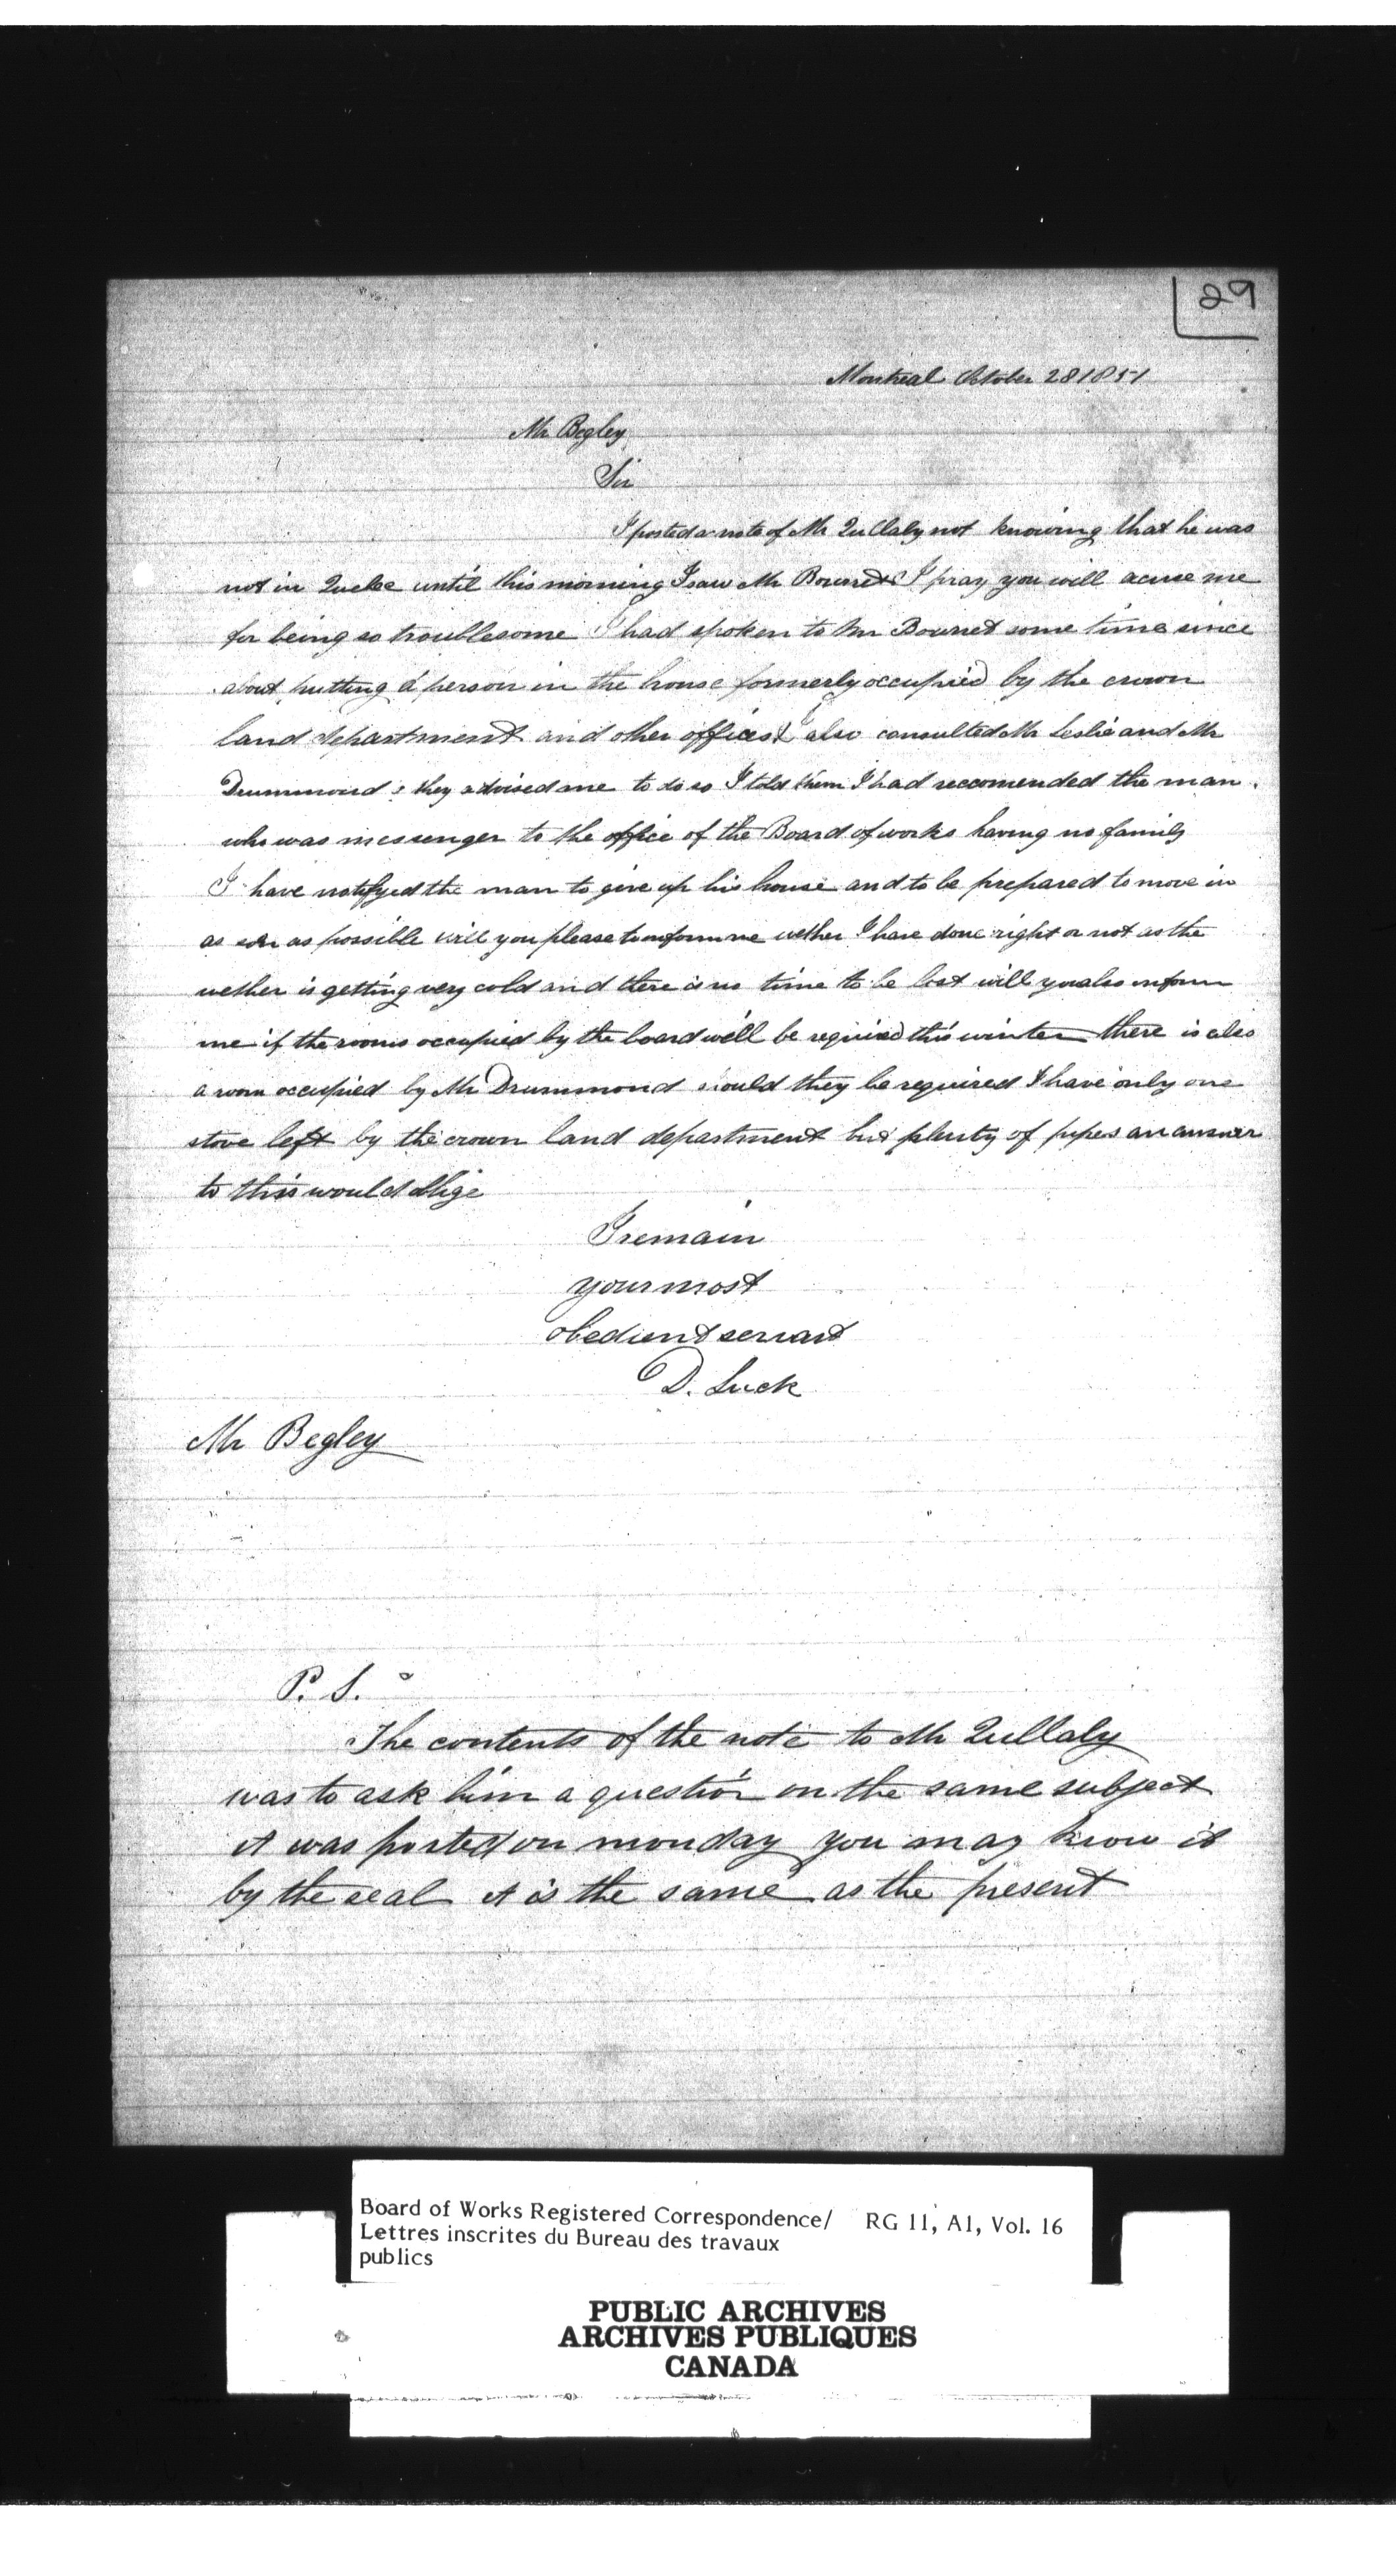 29
Montreal October 28 1851
Mr Begley
Sir
I posted a note of Mr Qullaly not knowing that he was
not in Quebe until this morning I saw Mr Bourret I pray you will acuse me
for being so troublesome I had spoken to Mr Bourret some time since
about putting a person in the house formerly occupied by the crown
land department and other offices I also consulted Mr Leslie and Mr
Drummond & they advised me to do so I told them I had reccomended the man
who was messenger to the office of the Board of works having no family
I have notifyed the man to give up his house and to be prepared to move in
as soon as possible will you please to inform me wether I have done right or not as the
wether is getting very cold and there is no time to be lost will you also inform
me if the rooms occupied by the board will be required this winter there is also
a room occupied by Mr Drummond would they be required I have only one
stove left by the crown land department but plenty of pipes an answer
to this would oblige
I remain
your most
obedient servant
D. Luck
Mr Begley
P. S.
The contents of the note to Mr Qullaly
was to ask him a question on the same subject
it was posted on monday you may know it
by the seal it is the same as the present
Board of Works Registered Correspondence/ RG 11, A1, Vol. 16
Lettres inscrites du Bureau des travaux
publics
PUBLIC ARCHIVES
ARCHIVES PUBLIQUES
CANADA